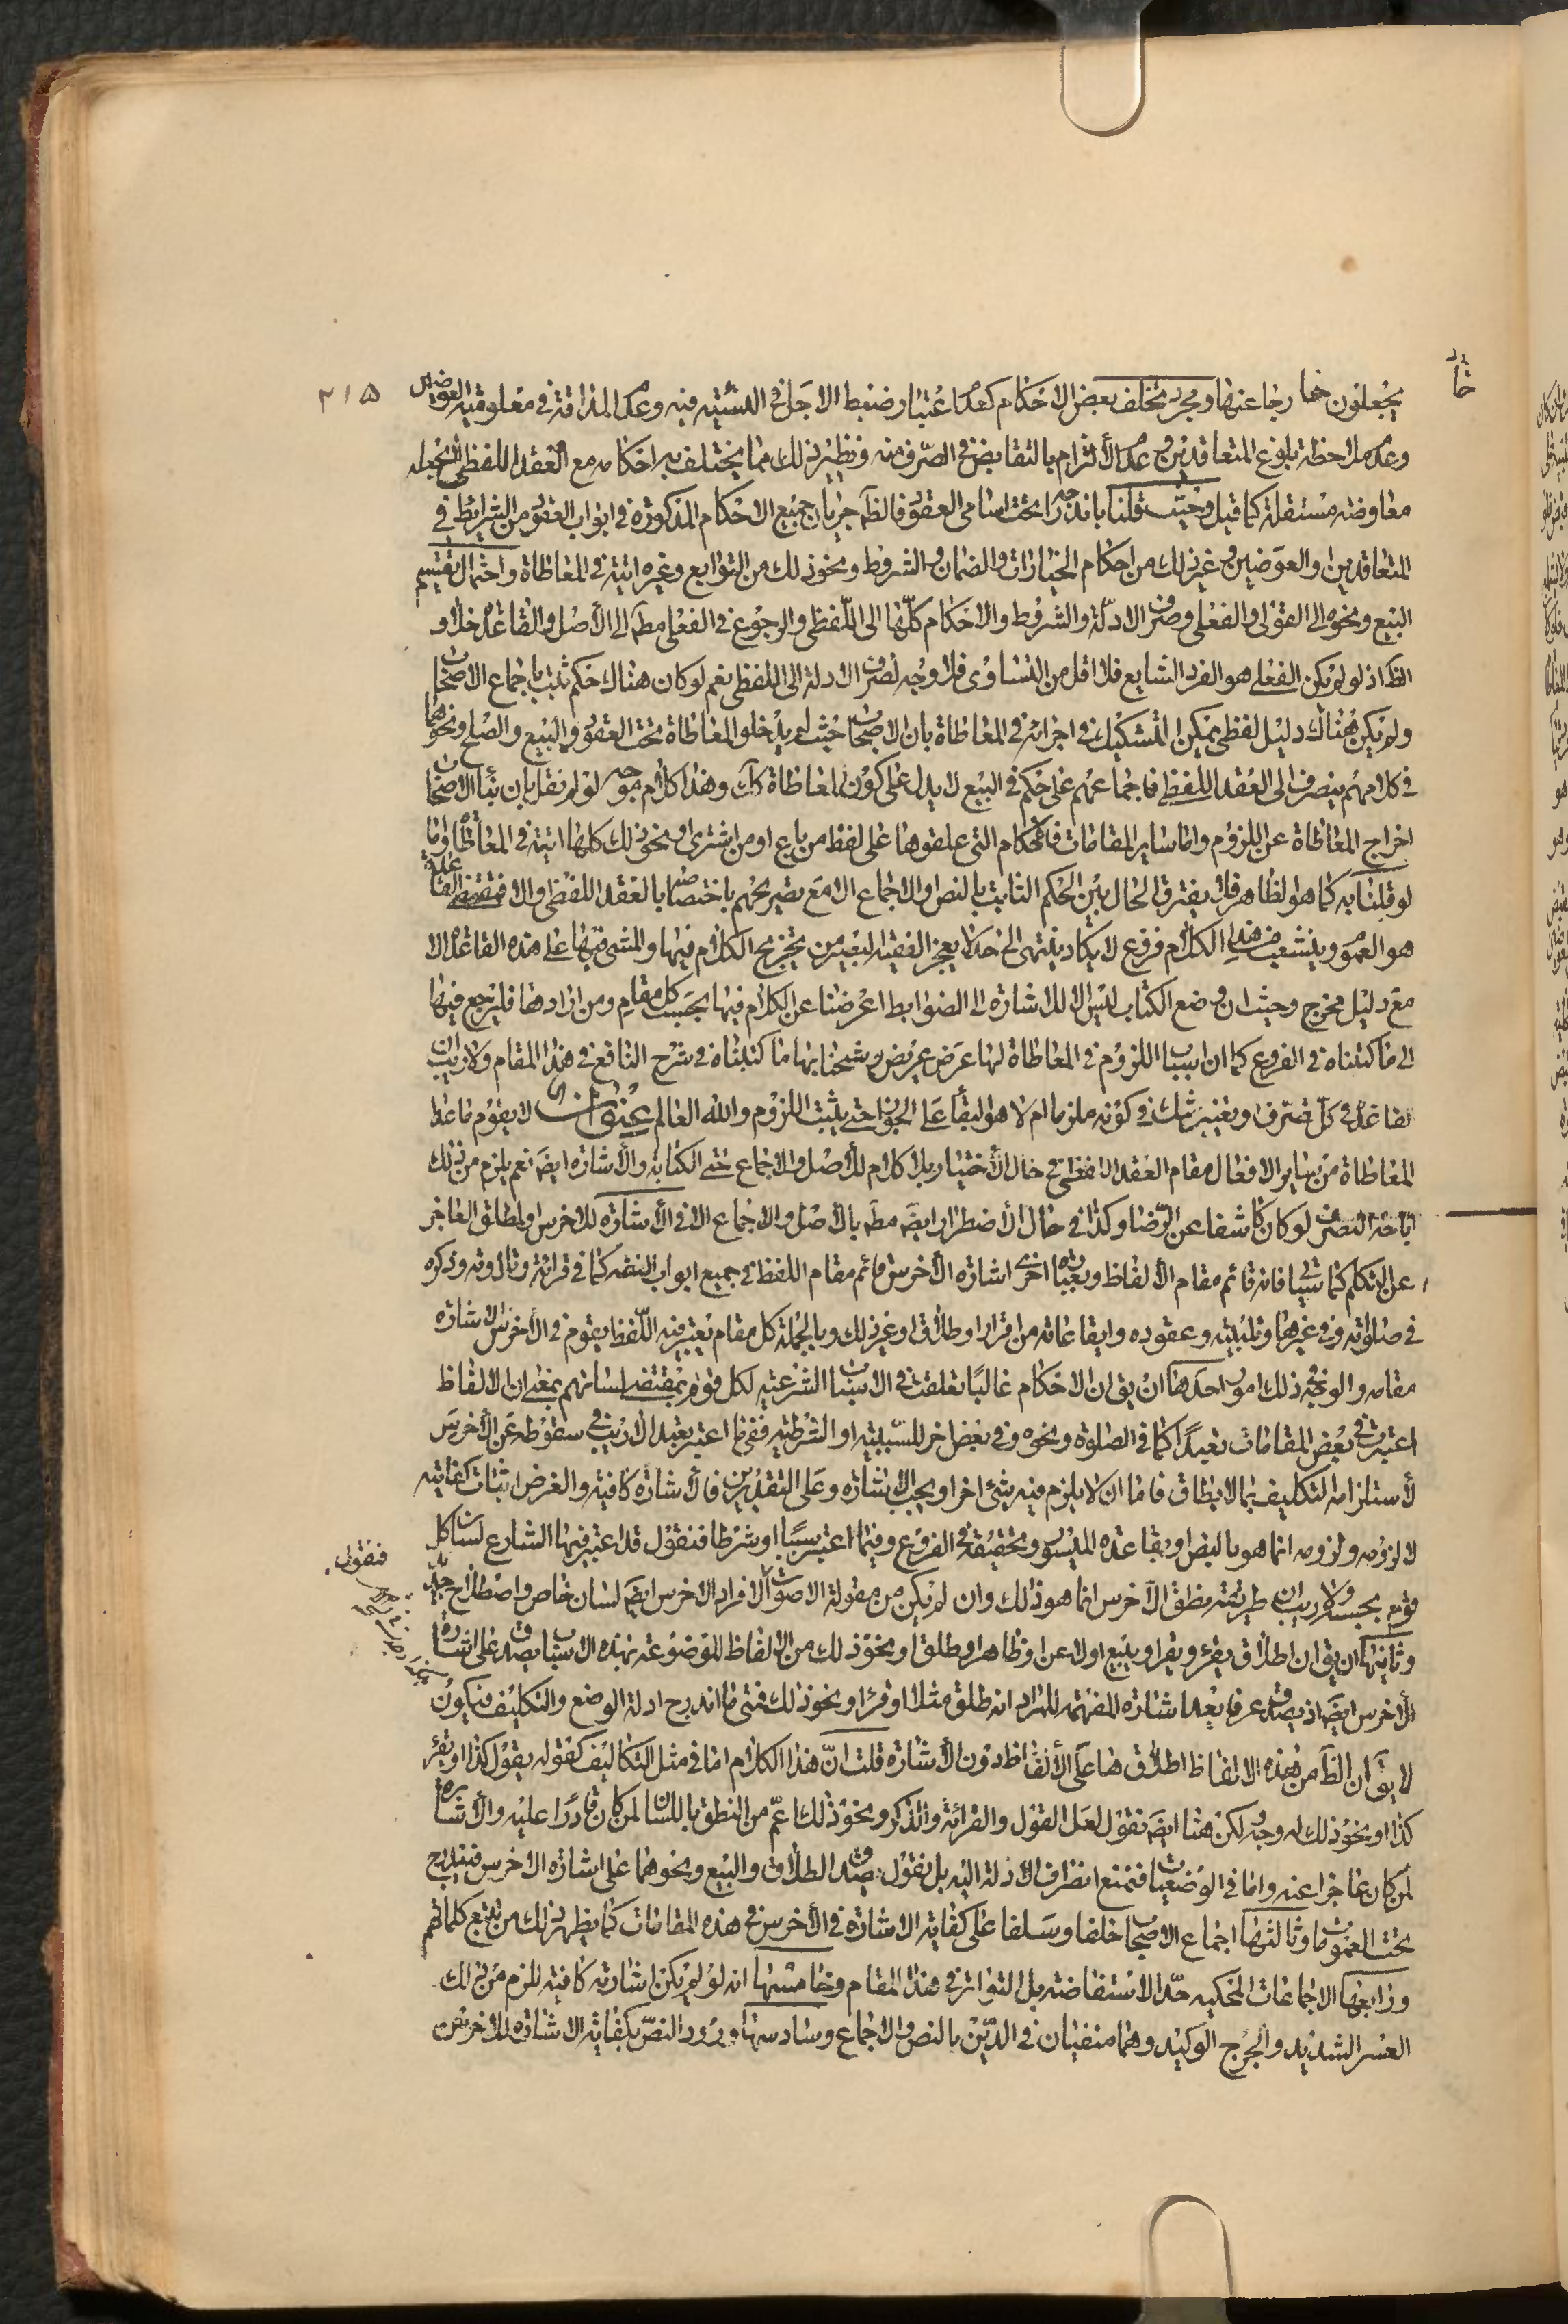 ٣١٥
يجعلون خارجا عنها ومجرد تخلف بعض الاحكام كعدم اعتبار ضبط الاجل في النسيئة فيه وعدم المداقة في معلومية العوضين
وعدم ملاحظة بلوغ المتعاقدين وعدم الألتزام بالتقابض في الصرف منه ونظير ذلك مما يختلف به احكامه مع العقد اللفظي لا يجعله
معاوضة مستقلة كما قيل وحيث قلنا باندراجه تحت اسامي العقود فالظ جريان جميع الاحكام المذكورة في ابواب العقود من الشرائط في
المتعاقدين والعوضين وغير ذلك من احكام الخيارات والضمان والشروط ونحو ذلك من التوابع وغيره اتية في المعاطاة واحتمال تقسيم
البيع ونحوه الى القولى والفعلى وصرف الادلة والشروط والاحكام كلها الى اللفظي والرجوع في الفعلى مط الى الأصل والقاعدة خلاف
الظ اذ لو لم يكن الفعلى هو الفرد الشايع فلا اقل من التساوى فلا وجه لصرف الادلة الى اللفظي نعم لو كان هناك حكم ثبت باجماع الاصحاب
ولم يكن هناك دليل لفظي يمكن التشكيك في اجرائه في المعاطاة بان الاصحاب حيث لم يدخلوا المعاطاة تحت العقود والبيع والصلح ونحوهما
في كلامهم ينصرف الى العقد اللفظي فاجماعهم على حكم في البيع لا يدل على كون المعاطاة كك وهذا كلام موجه لو لم نقل بان بناء الاصحاب
اخراج المعاطاة عن اللزوم واما ساير المقامات فالأحكام التى علقوها على لفظ من باع او من اشترى ونحو ذلك كلها اتية في المعاطاة واما
لو قلنا به كما هو الظاهر فلا يفترق الحال بين الحكم الثابت بالنص او الاجماع الا مع تصريحهم باختصاصه بالعقد اللفظي والا فمقتضى القاعدة
هو العموم وينشعب من هذا الكلام فروع لا يكاد ينتهى الى حد لا يعجز الفقيه البصير من تخريج الكلام فيها والمشى فيها على هذه القاعدة الا
مع دليل مخرج وحيث ان وضع الكتاب ليس الا للاشارة الى الضوابط اعرضنا عن الكلام فيها بحسب كل مقام ومن ارادها فليرجع فيها
الى ما كتبناه في الفروع كما ان اسباب اللزوم في المعاطاة لها عرض عريض وشحنا بها ما كتبناه في شرح النافع في هذا المقام ولا ريب ان
القاعدة في كل تصرف او تغيير شك في كونه ملزما ام لا هو البقاء على الجواز حتى يثبت اللزوم والله العالم عنوان لا يقوم ما عدا
المعاطاة من ساير الافعال مقام العقد اللفظي في حال الأختيار بلا كلام للأصل والاجماع حتى الكتابة والأشارة ايض نعم يلزم من ذلك
اباحة التصرف لو كان كاشفا عن الرضا وكذا في حال الأضطرار ايض مط بالأصل والاجماع الا في الأشارة للاخرس او مطلق العاجز
عن التكلم كما سياتى فانه قائم مقام الألفاظ وبعبارة اخرى اشارة الأخرس قائم مقام اللفظ في جميع ابواب الفقه كما في قرائته وتلاوته وذكره
في صلوته وفي غيرها وتلبيته وعقوده وايقاعاته من اقرار او طلاق او غير ذلك وبالجملة كل مقام يعتبر فيه اللفظ يقوم في الأخرس الاشارة
مقامه والوجه في ذلك امور احدها ان يق ان الاحكام غالبا تعلقت في الاسباب الشرعية لكل قوم بمقتضى لسانهم بمعنى ان الالفاظ
اعتبرت في بعض المقامات تعبدا كما في الصلوة ونحوه وفي بعض اخر للسببية او الشرطية ففي ما اعتبر تعبدا لا ريب في سقوطه عن الأخرس
لأستلزامه التكليف بما لا يطاق فاما ان لا يلزم فيه شئ اخر او يجب الاشارة وعلى التقديرين فالأشارة كافية والغرض اثبات كفايته
لا لزومه ولزومه انما هو بالنص او بقاعدة الميسور وتحقيقه في الفروع وفيما اعتبر سببا او شرطا فنقول قد اعتبر فيها الشارع لسان كل
قوم بحسبه ولا ريب ان طريقة منطق الآخرس انما هو ذلك وان لم يكن من مقولة الاصوات الا افراد الاخرس ايض لسان خاص واصطلاح جديد
وثانيها ان يق ان اطلاق يقرء ويقرا ويبيع او لاعن او ظاهر وطلق او نحو ذلك من الالفاظ الموضوعة لهذه الاسباب يصدق على اشارة
الأخرس ايض اذ يصدق عرفا بعد اشارة المفهمة للمراد انه طلق مثلا او قرا او نحو ذلك فمتى ما اندرج ادلة الوضع والتكليف فيكون
لا يق ان الظ من هذه الالفاظ اطلاقها على الألفاظ دون الأشارة قلت انّ هذا الكلام اما في مثل التكاليف كقوله يقول كذا او يقرء
كذا او نحو ذلك له وجه لكن هنا ايض نقول لعل القول والقرائة والذكر ونحو ذلك اعم من النطق باللسان لمن كان قادرا عليه والأشارة
لمن كان عاجزا عنه واما في الوضعيات فنمنع انصراف الأدلة اليه بل نقول بصدق الطلاق والبيع ونحوهما على اشارة الاخرس فيندرج
تحت العمومات وثالثها اجماع الاصحاب خلفا وسلفا على كفاية الاشارة في الأخرس في هذه المقامات كما يظهر ذلك من تتبع كلماتهم
ورابعها الاجماعات المحكيه حدّ الاستفاضة بل التواتر في هذا المقام وخامسها انه لو لم يكن اشارته كافية للزم من ذلك
العسر الشديد والحرج الوكيد وهما منفيان في الدّين بالنص والاجماع وسادسها ورود النصّ بكفاية الاشارة للاخرس في
فنقول